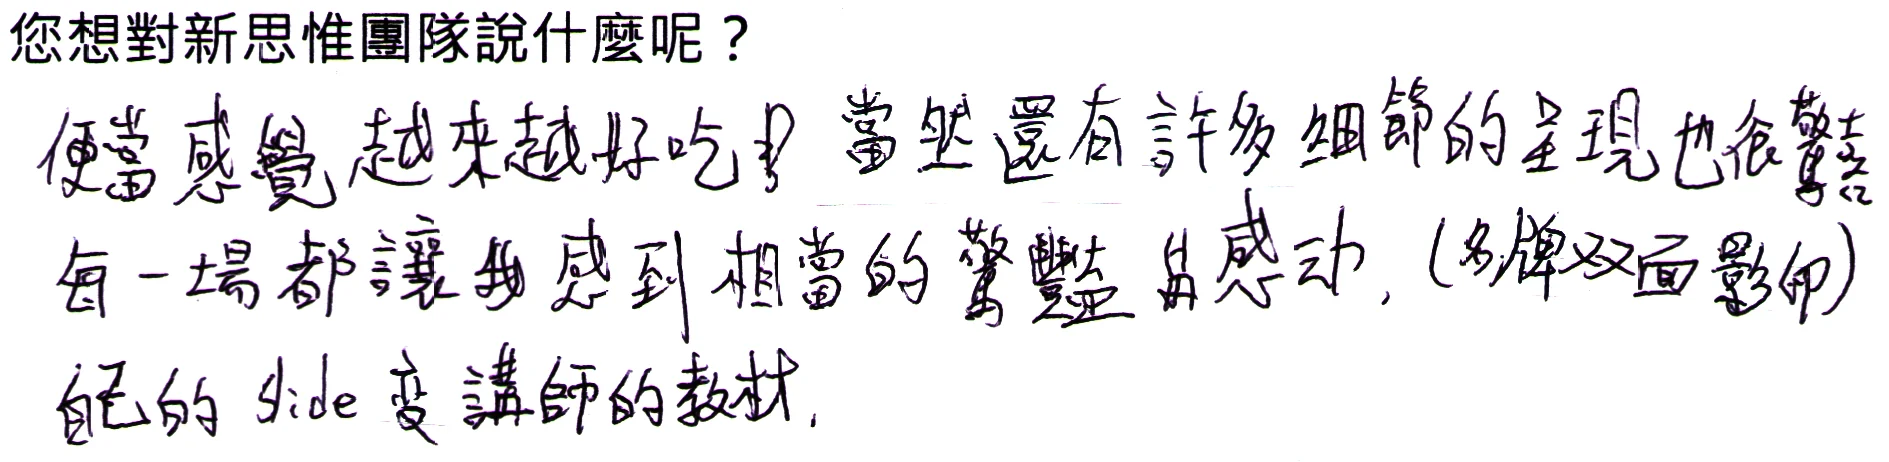 您想對新思惟團隊說什麼呢？
便當感覺越來越好吃！當然還有許多細節的呈現也很驚喜
每一場都讓我感到相當的驚豔與感动，(名牌双面影印)
自己的 slide 变講師的教材。